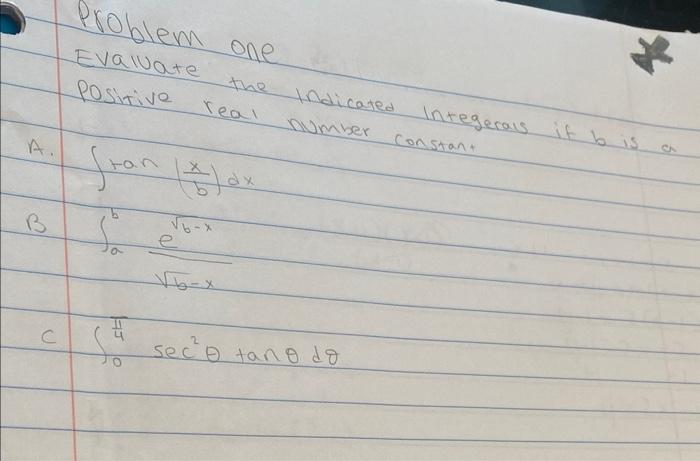 Problem one
Evaluate the indicated Integerals if b is a
Positive real number constant
A. ∫ tan (x/b) dx
B ∫_a^b e^√b-x / √b-x
C ∫_0^π/4 sec²θ tanθ dθ